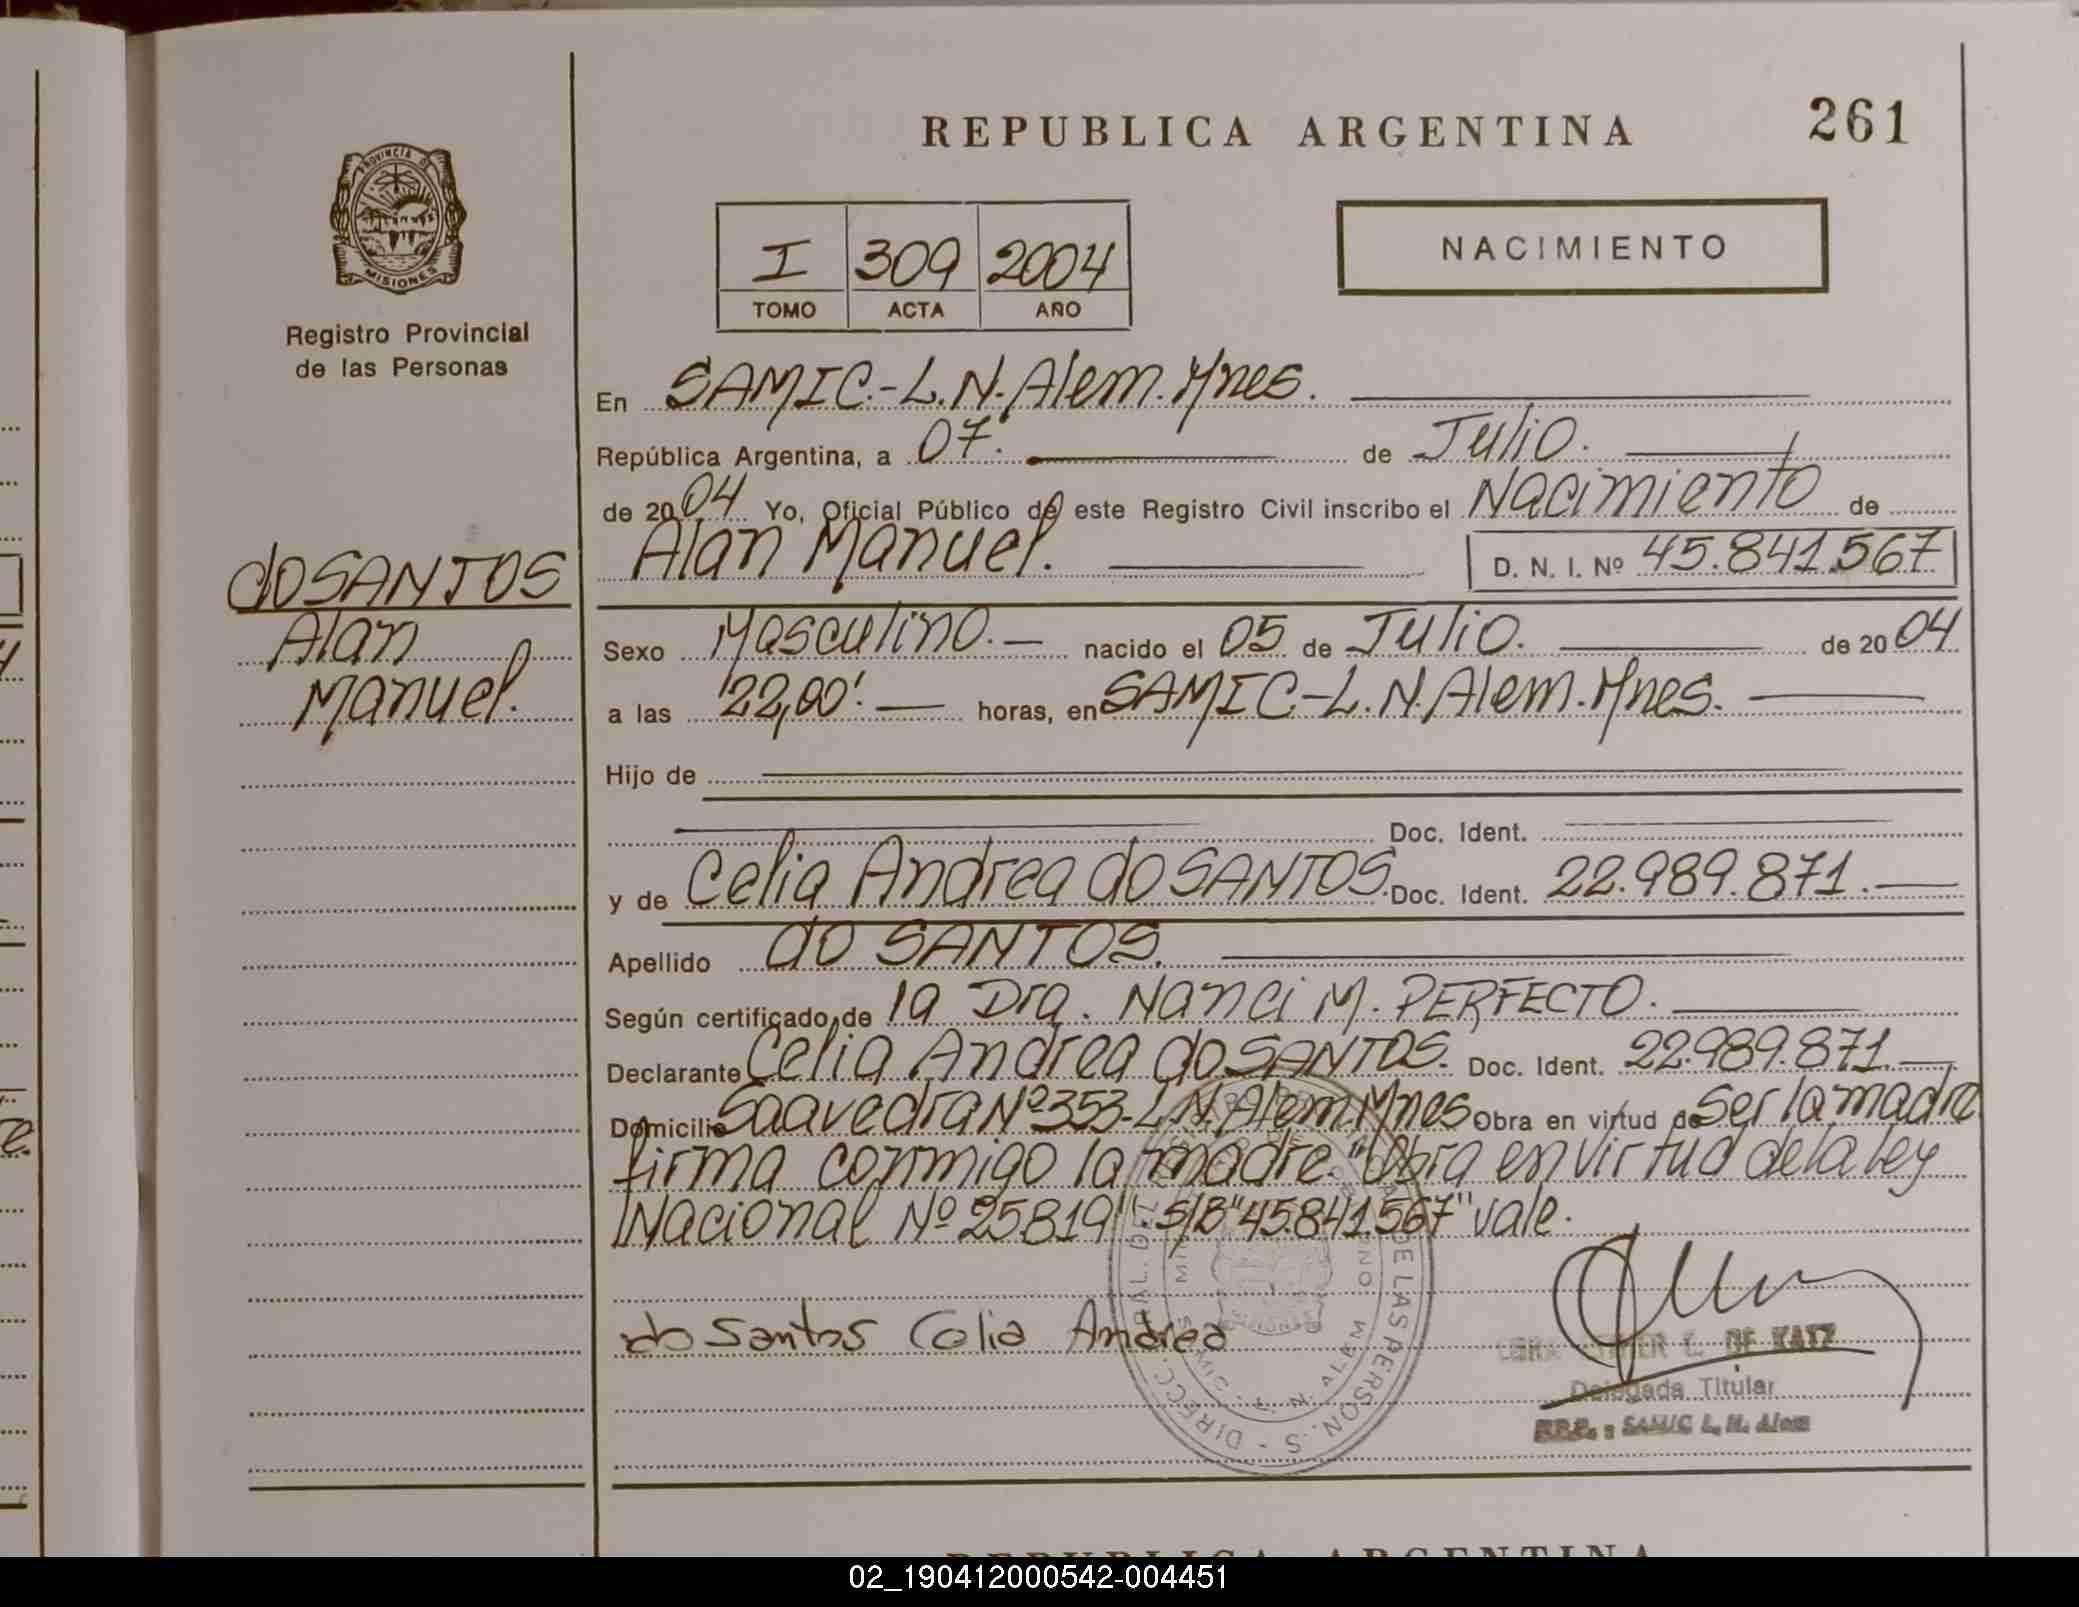 REPUBLICA ARGENTINA
261
PROVINCIA DE
MISIONES
Registro Provincial
de las Personas
I 309 2004
TOMO ACTA AÑO
NACIMIENTO
En SAMIC.-L.N.Alem.Mnes.
República Argentina, a 07. de Julio.
de 2004 Yo, Oficial Público de este Registro Civil inscribo el Nacimiento de
Alan Manuel. D. N. I. Nº 45.841.567
do SANTOS
Alan
Manuel.
Sexo Masculino.- nacido el 05 de Julio. de 2004
a las 22,00'.- horas, en SAMIC-L.N.Alem.Mnes.
Hijo de
Doc. Ident.
y de Celia Andrea do SANTOS. Doc. Ident. 22.989.871.-
Apellido do SANTOS.
Según certificado de la Dra. Nanci M. PERFECTO.
Declarante Celia Andrea do SANTOS. Doc. Ident. 22.989.871.-
Domicilio Saavedra Nº353-L.N.Alem.Mnes Obra en virtud de Ser la madre
firma conmigo la madre."Obra en virtud de la Ley
Nacional Nº 25819": S/B"45.841.567" vale.
do Santos Celia Andrea
DE KATZ
Delegada Titular
SAMIC L. N. Alem
DE LAS PERSONAS
L. N. ALEM
REPUBLICA ARGENTINA
02_190412000542-004451